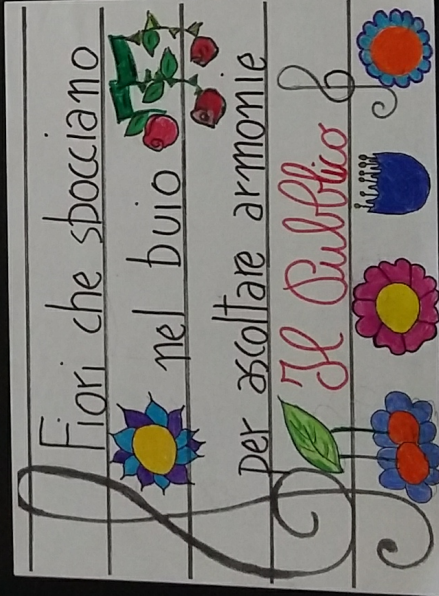 Fiori che sbocciano
nel buio
per ascoltare armonie
Il Pubblico